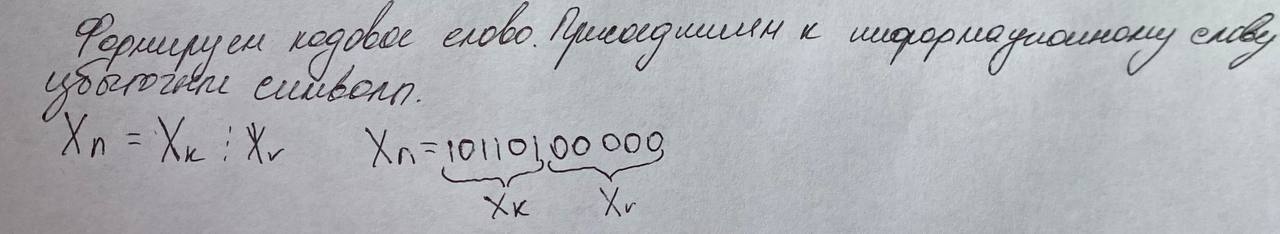 Формируем кодовое слово. Присоединим к информационному слову
избыточные символы.
Xn = Xk : Xr Xn = 10110100000
Xk Xr